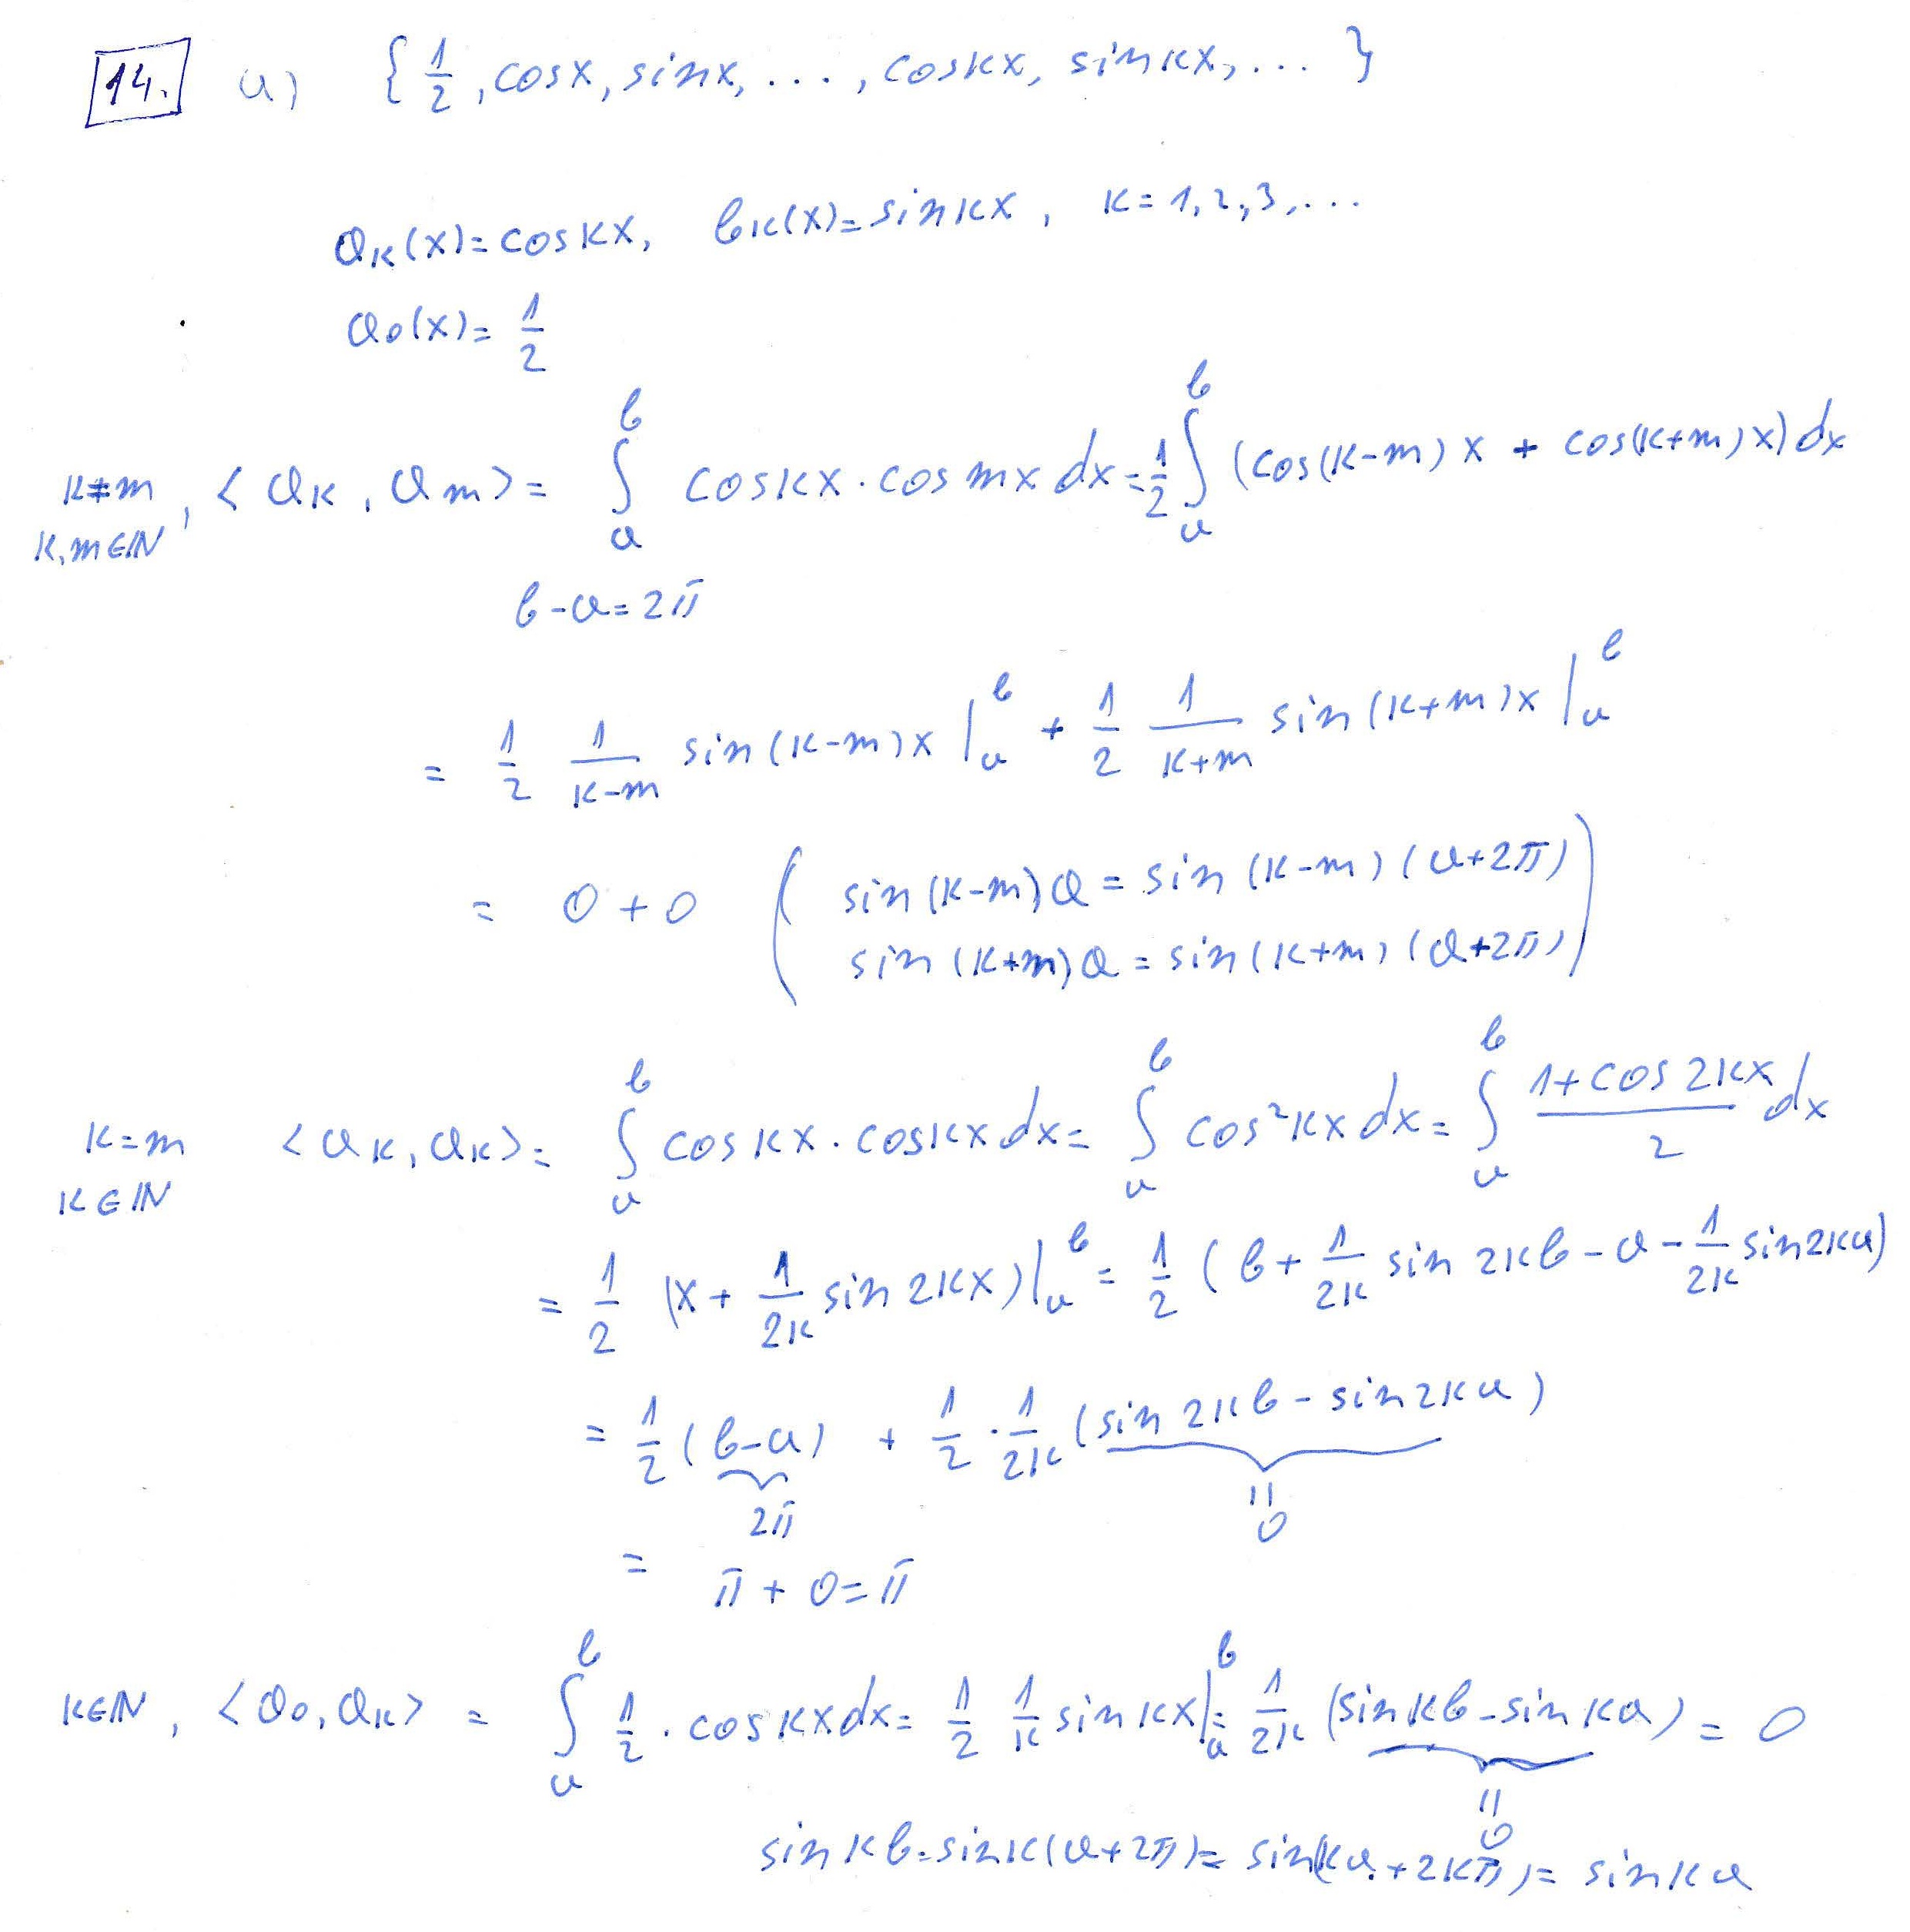 14. a) { 1/2, cosx, sinx, ..., coskx, sinkx, ... }
a_k(x)= coskx, b_k(x)= sinkx, k= 1,2,3,...
a_0(x)= 1/2
k≠m, k,m∈ℕ, <a_k, a_m> = ∫_a^b coskx · cosmx dx = 1/2 ∫_a^b (cos(k-m)x + cos(k+m)x) dx
b-a=2π
= 1/2 1/(k-m) sin(k-m)x |_a^b + 1/2 1/(k+m) sin(k+m)x |_a^b
= 0+0 ( sin(k-m)a = sin(k-m)(a+2π)
sin(k+m)a = sin(k+m)(a+2π) )
k=m k∈ℕ <a_k, a_k> = ∫_a^b coskx · coskx dx = ∫_a^b cos²kx dx = ∫_a^b (1+cos2kx)/2 dx
= 1/2 (x + 1/2k sin2kx) |_a^b = 1/2 (b + 1/2k sin2kb - a - 1/2k sin2ka)
= 1/2 (b-a) + 1/2 · 1/2k (sin2kb - sin2ka)
2π = 0
= π + 0 = π
k∈ℕ, <a_0, a_k> = ∫_a^b 1/2 · coskx dx = 1/2 1/k sinkx |_a^b = 1/2k (sinkb - sinka) = 0
= 0
sinkb = sink(a+2π) = sin(ka+2kπ) = sinka